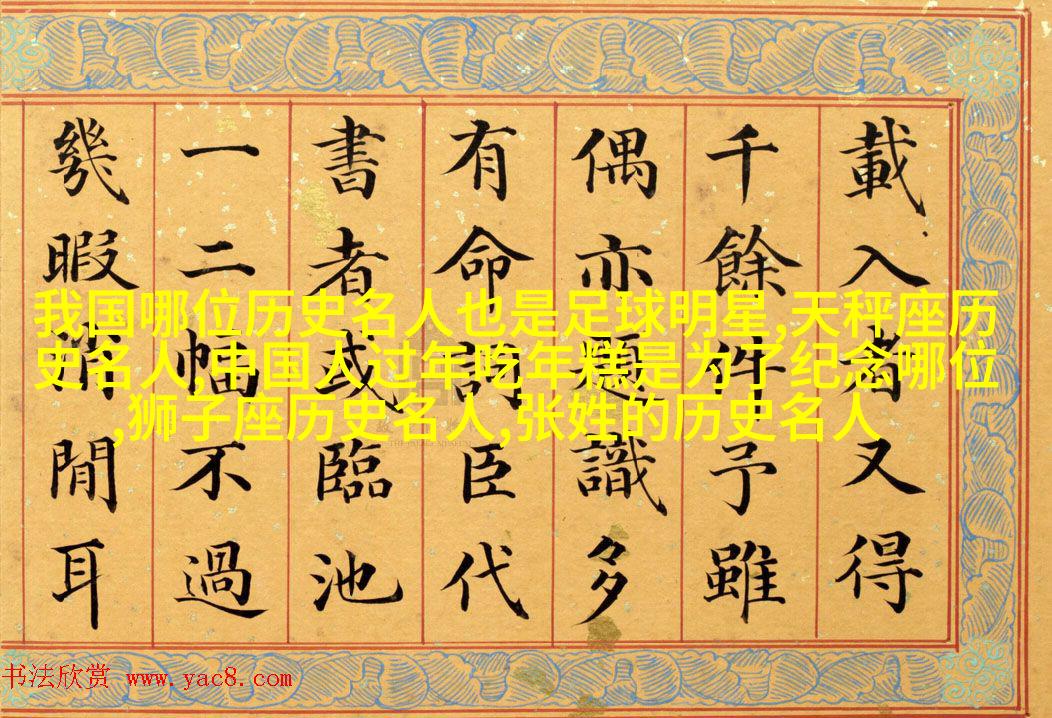 載入者又得
千餘件予雖
偶亦題識多
有命詞臣代
書者或臨池
一二幅不過
幾暇消閒耳
我国哪位历史名人也是足球明星,天秤座历
史名人,中国人过年吃年糕是为了纪念哪位
,狮子座历史名人,张姓的历史名人
THE PALACE MUSEUM
书法欣赏 www.yac8.com